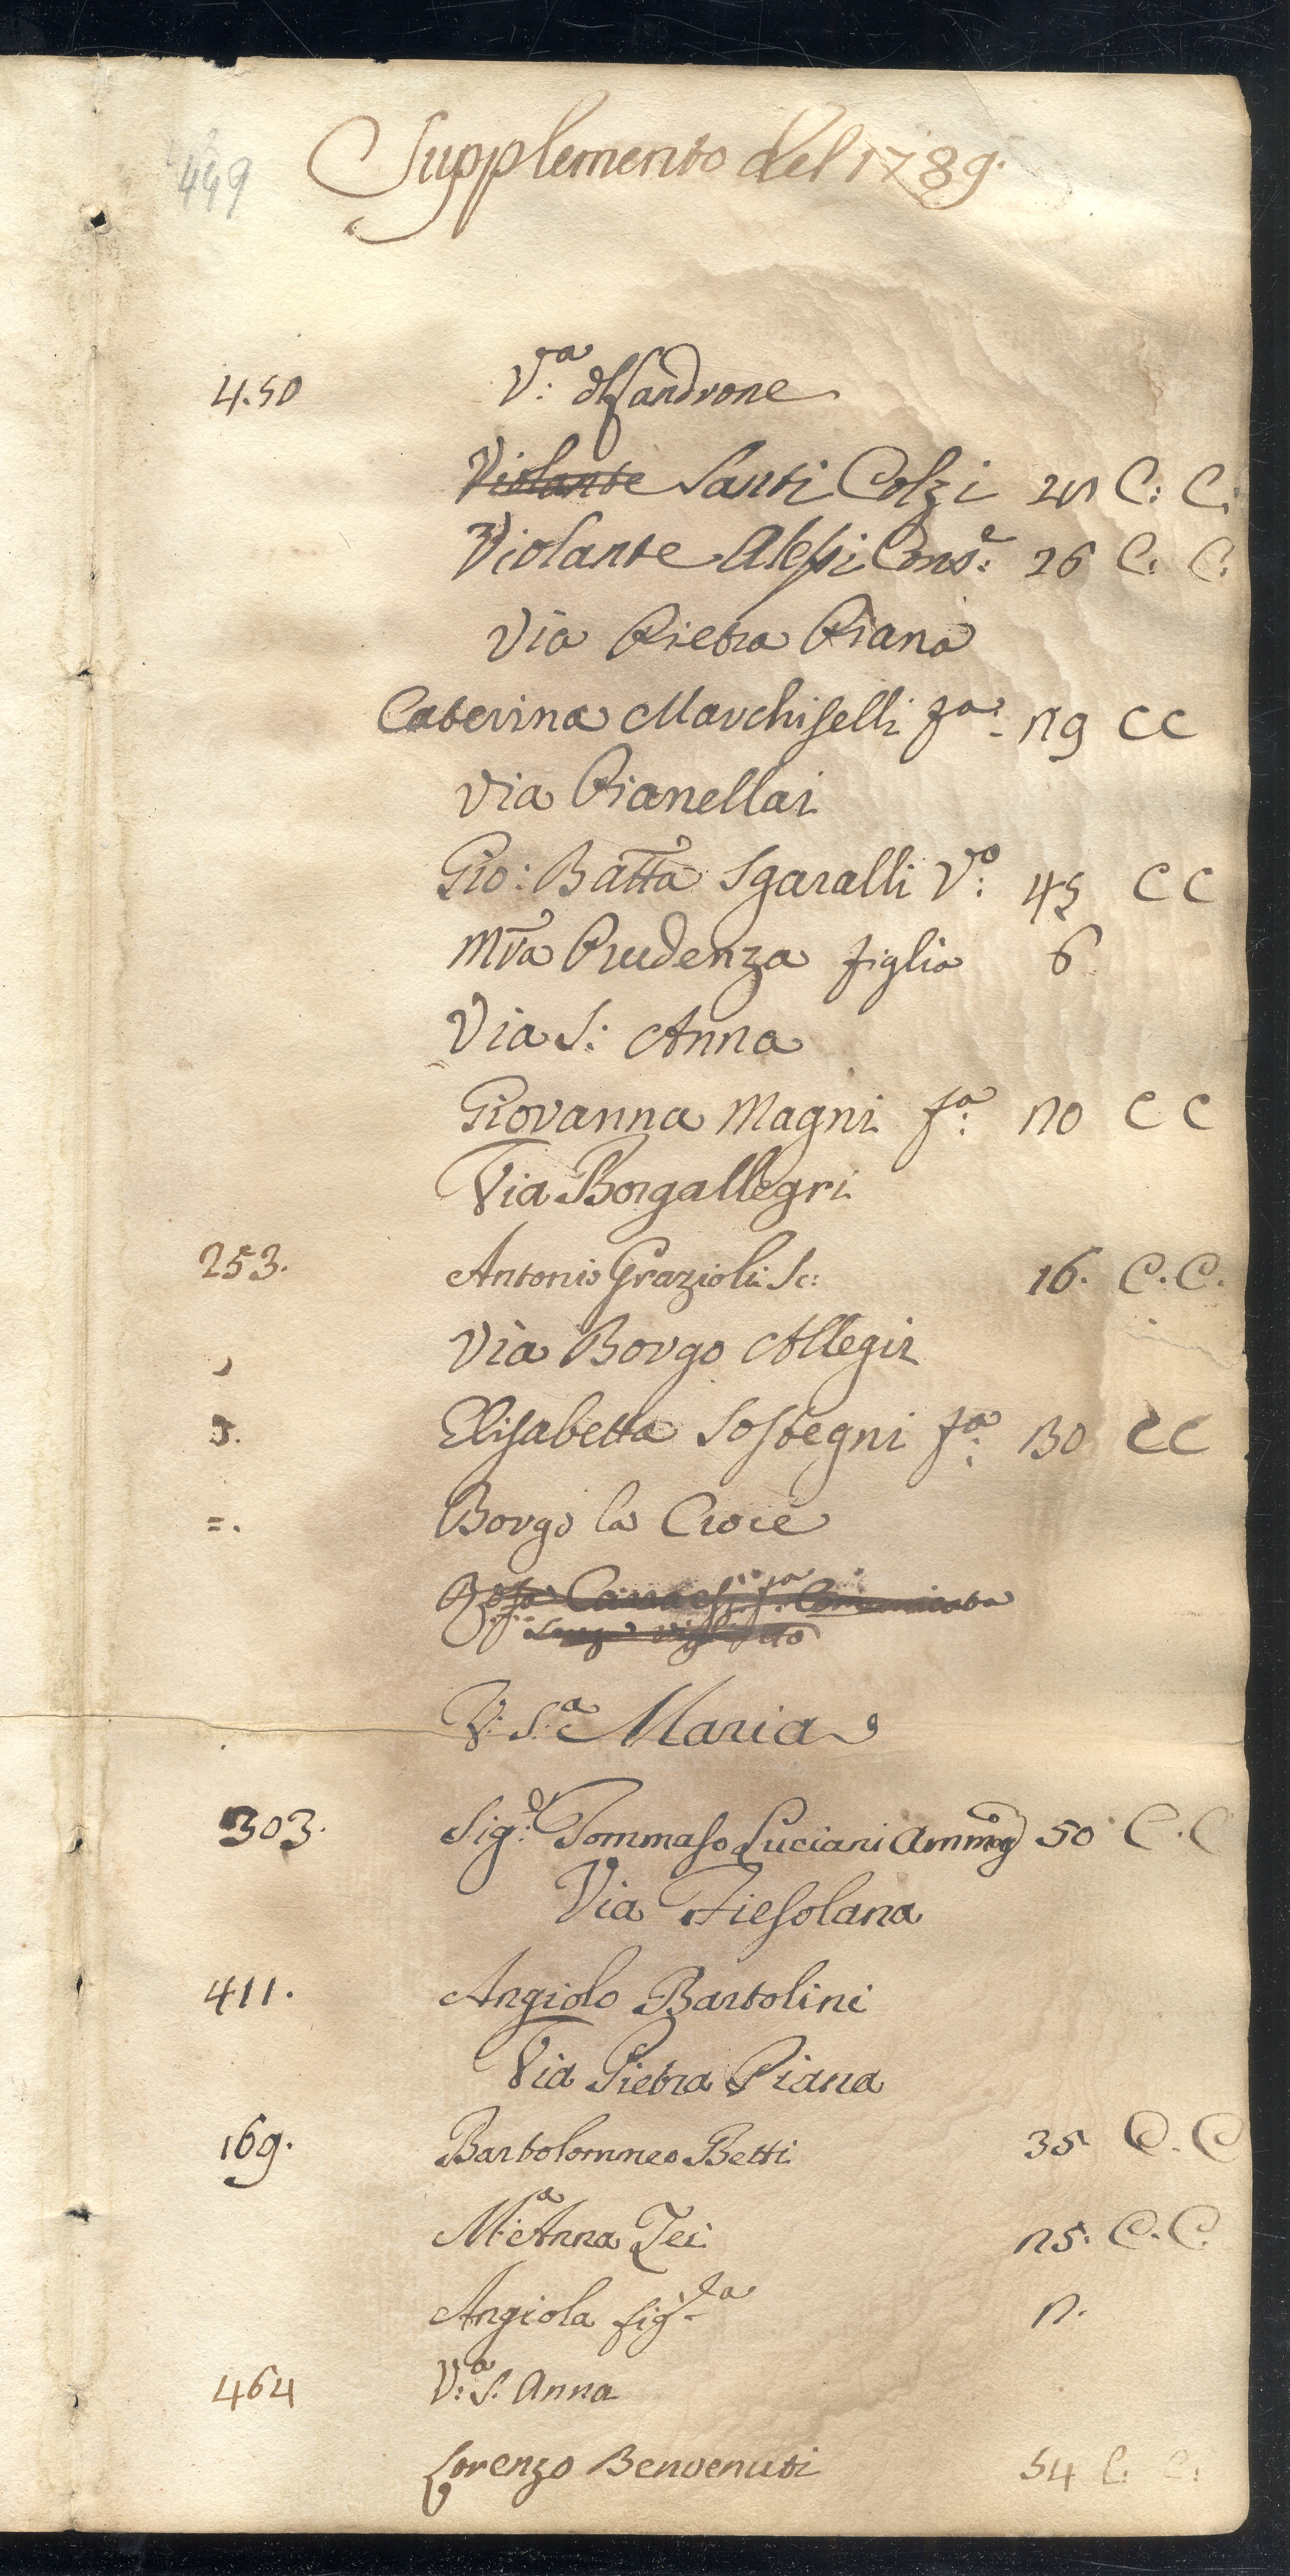 449
Supplemento del 1789.
450 V.a di Sandrone
Violante Santi Colzi C: C:
Violante Alessi Cons.e 26 C: C:
Via Pietra Piana
Caterina Marchiselli fa: 19 C C
Via Pianellai
Gio: Batta Sgaralli V.o 45 C C
Mra Prudenza figlia 6
Via S: Anna
Giovanna Magni fa: 10 C C
Via Borgallegri
253. Antonio Grazioli Sc: 16. C. C.
Via Borgo Allegir
Elisabetta Sostegni fa: 130 C C
=. Borgo la Croce
Rosa fa Comunicata
Senza viglietto
V: S.a Maria
303. Sig.r Tommaso Luciani Ammog 50 C. C
Via Fiesolana
411. Angiolo Bartolini
Via Pietra Piana
169. Bartolommeo Betti 35 C. C
M.a Anna Zei 25. C. C.
Angiola fig.la
464 V.a S. Anna
Lorenzo Benvenuti 54 C. C.